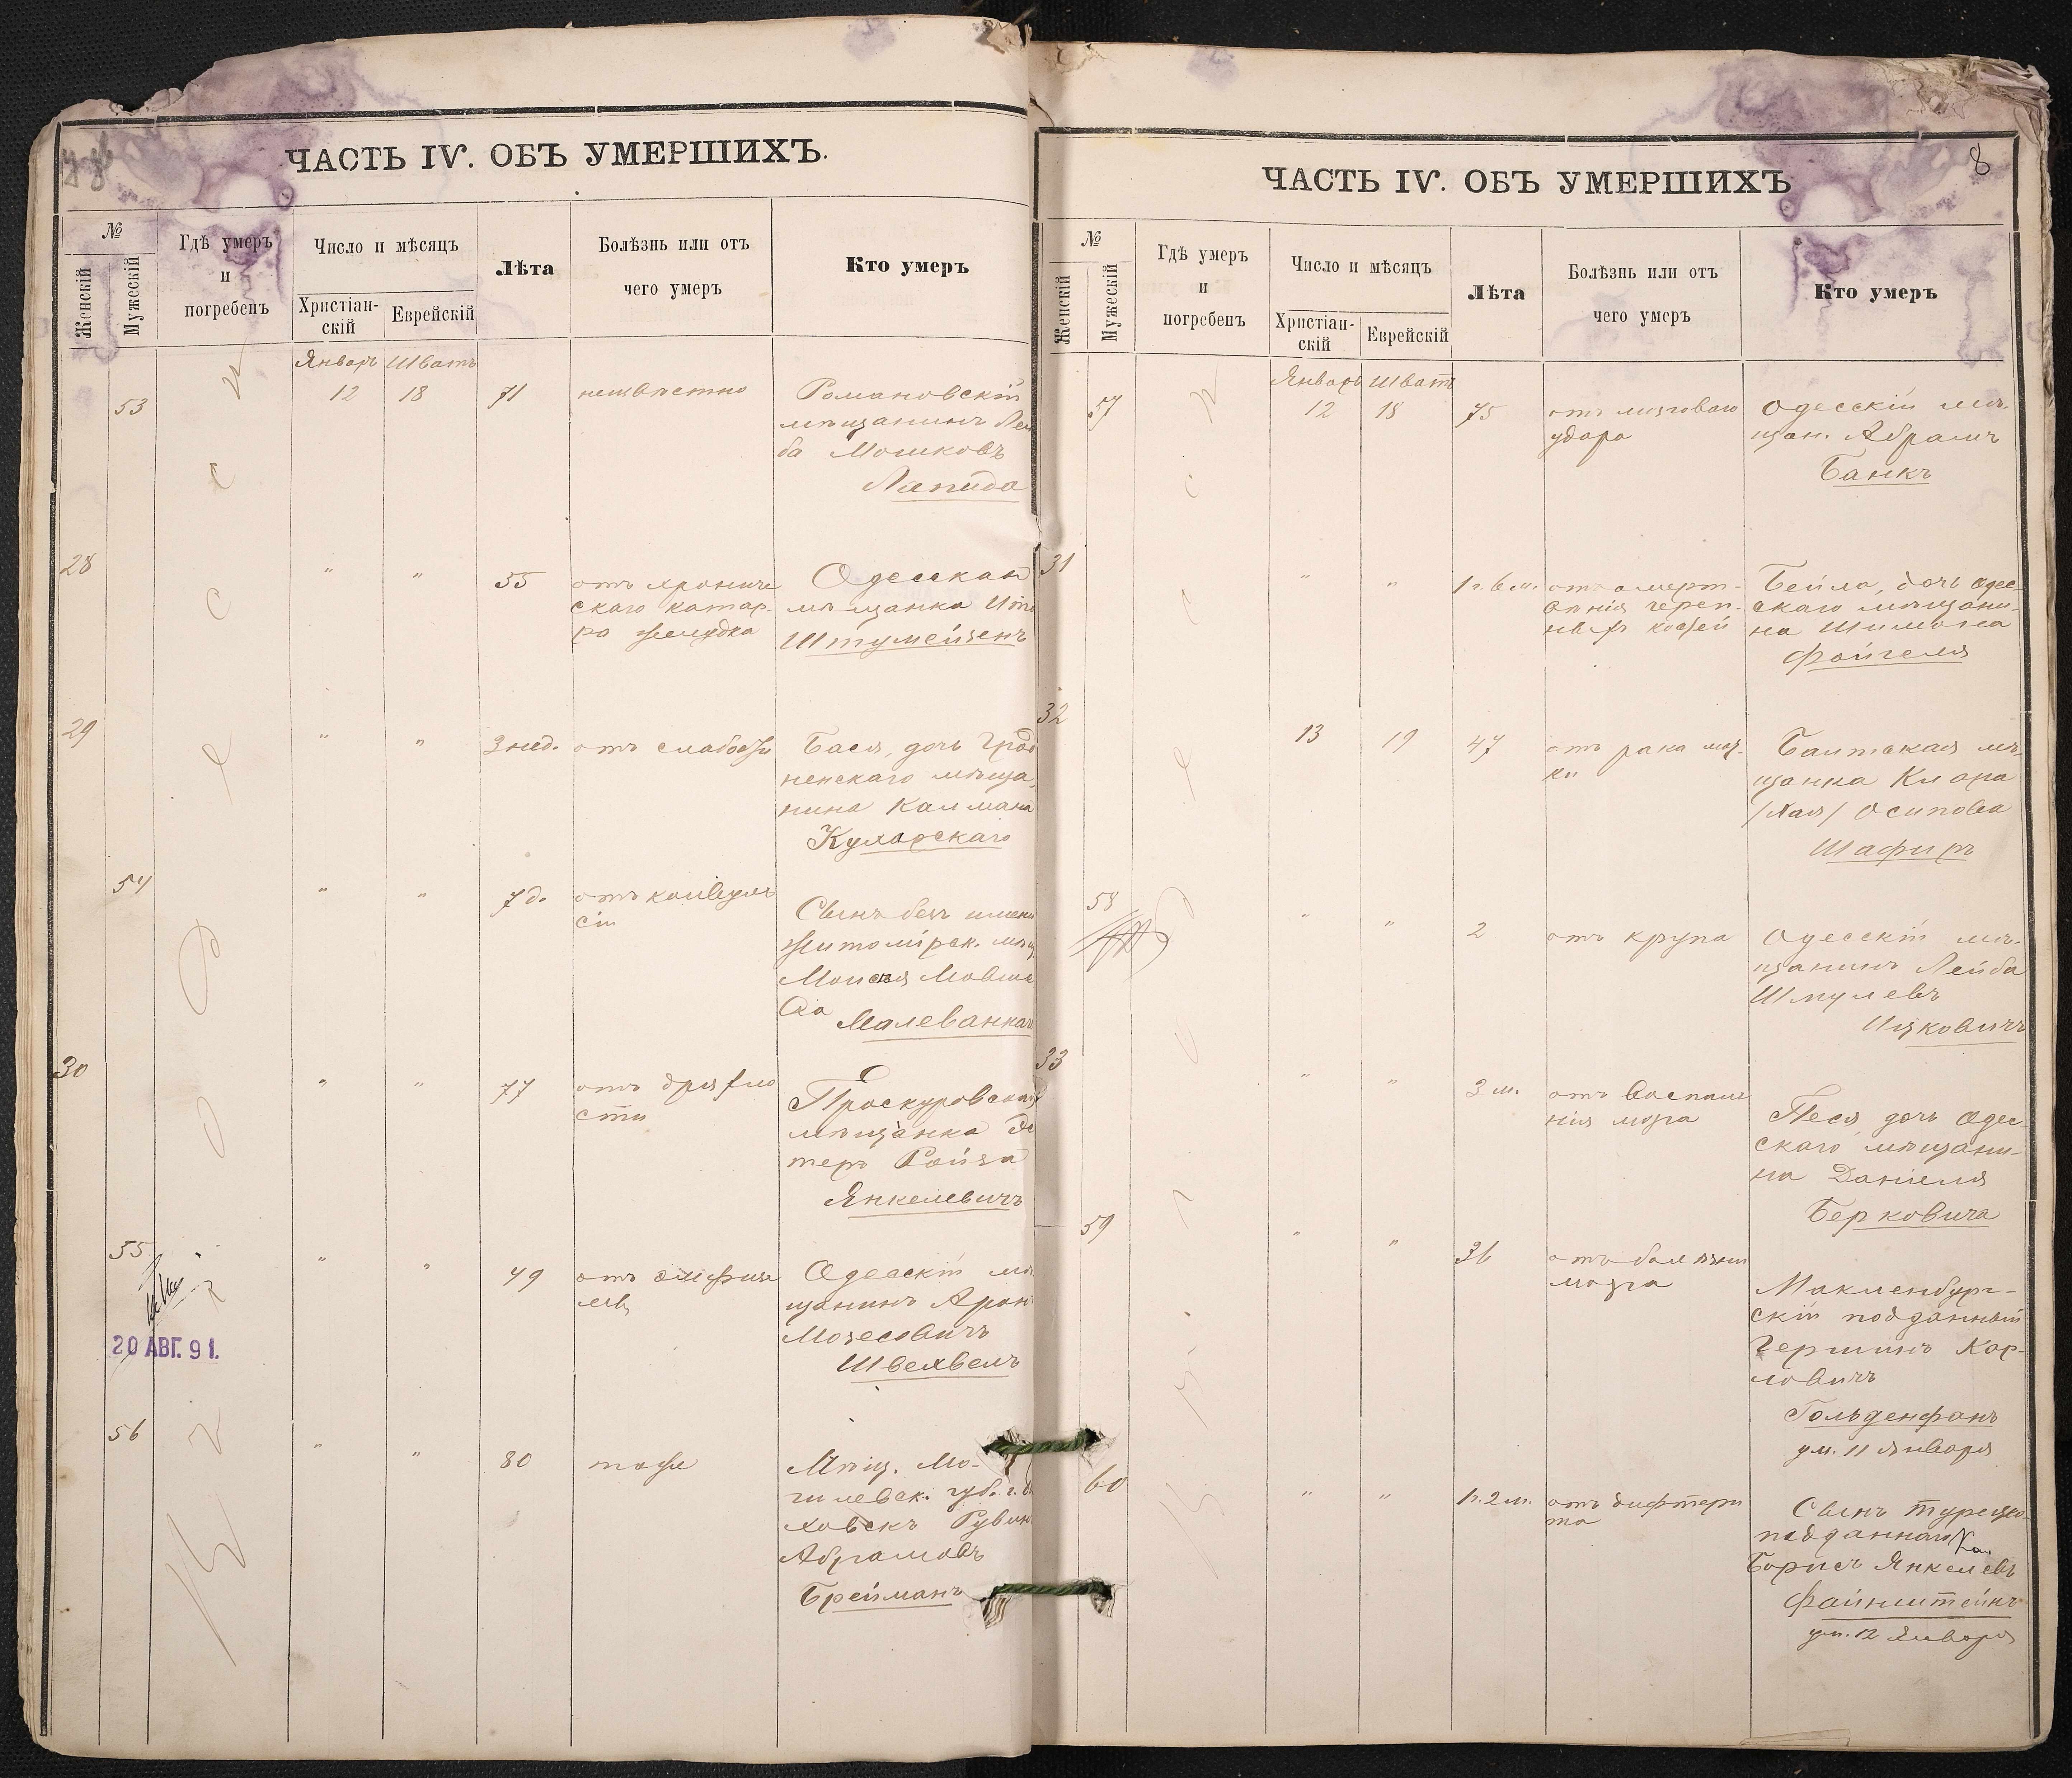 ЧАСТЬ IV. ОБЪ УМЕРШИХЪ.
№
Женскій
Мужескій
Гдѣ умеръ
и
погребенъ
Число и мѣсяцъ
Христіан-
скій
Еврейскій
Лѣта
Болѣзнь или отъ
чего умеръ
Кто умеръ
Январь Шватъ
53
12
18
71
неизвѣстно
Романовскій
мѣщанинъ Лей
ба Мошковъ
Лапида
28
"
"
55
отъ хрониче
скаго катар-
ра желудка
Одесская
мѣщанка Ита
Штумейзенъ
29
"
"
3 нед.
отъ слабости
Бася, дочь Грод
ненскаго мѣща
нина Калмана
Куларскаго
54
"
"
7 д.
отъ конвуль
сіи
Сынъ безъ имени
Житомірск. мѣщ
Моисея Мовше
ва
Малеванкаго
30
"
"
77
отъ дряхло
сти
Проскуровская
мѣщанка Эс
теръ Ройза
Янкелевичъ
55
"
"
49
отъ эмфизе
мы
Одесскій мѣ
щанинъ Аронъ
Мозесовичъ
Швехвелъ
20 АВГ. 91.
56
"
"
80
тоже
Мѣщ. Мо-
гилевск. губ. г. Бы
ховскъ Рувин
Абрамовъ
Брейманъ
8
ЧАСТЬ IV. ОБЪ УМЕРШИХЪ
№
Женскій
Мужескій
Гдѣ умеръ
и
погребенъ
Число и мѣсяцъ
Христіан-
скій
Еврейскій
Лѣта
Болѣзнь или отъ
чего умеръ
Кто умеръ
Январь Шватъ
57
12
18
75
отъ мозговаго
удара
Одесскій мѣ-
щан. Абрамъ
Банкъ
31
"
"
1 г. 6 м.
отъ омерт-
вѣнія череп-
ныхъ костей
Бейла, дочь Одес-
скаго мѣщани-
на Шимона
Фойгеля
32
13
19
47
отъ рака мат-
ки
Балтская мѣ-
щанка Клара
/Хая/ Осипова
Шафиръ
58
"
"
2
отъ крупа
Одесскій мѣ-
щанинъ Лейба
Шмулевъ
Ицковичъ
33
"
"
3 м.
отъ воспале
нія мозга
Песя, дочь Одес
скаго мѣщани-
на Даніеля
Берковича
59
"
"
36
отъ болѣзни
мозга
Макленбург-
скій подданный
Германъ Кар-
ловичъ
Гольденфанъ
ум. 11 января
60
"
"
1 г. 2 м.
отъ дифтери
та
Сынъ турецко-
подданнаго
Борисъ Янкелевъ
Файнштейнъ
ум. 12 Января